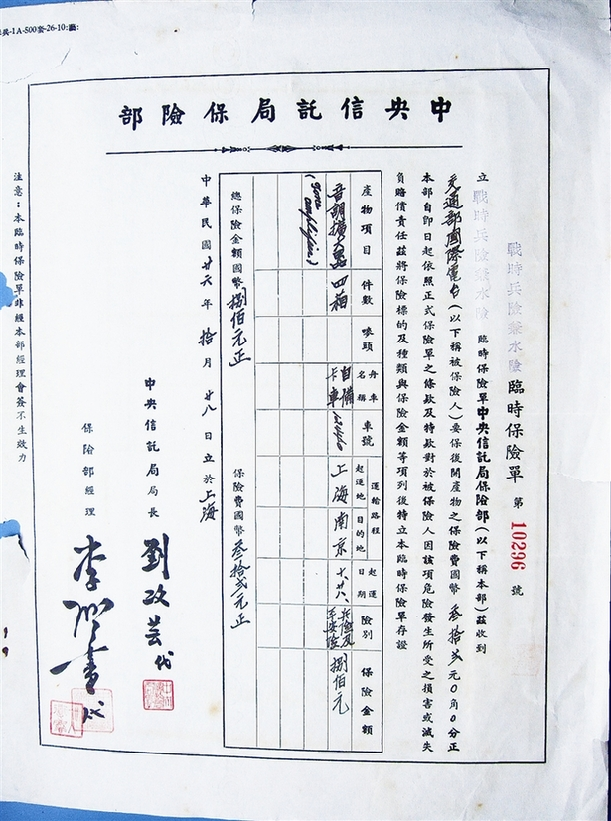 兵-1A-500套-26-10:
中央信託局保險部
戰時兵險兼水險 臨時保險單 第 10296 號
立 戰時兵險兼水險 臨時保險單中央信託局保險部(以下稱本部)茲收到
交通部國際電台(以下稱被保險人)要保後開產物之保險費國幣 叁拾貳元0角0分正
本部自即日起依照正式保險單之條款及特款對於被保險人因該項危險發生所受之損害或滅失
負賠償責任茲將保險標的及種類與保險金額等項列後特立本臨時保險單存證
產物項目 件數 嘜頭 舟車名稱 車號 運輸路程 起運地 目的地 起運日期 險別 保險金額
音調擴大器 四箱 自備卡車 上海 南京 十、廿八、 兵險及平安險 捌佰元
總保險金額國幣捌佰元正 保險費國幣叁拾貳元正
中華民國廿六年 拾月 廿八日立於上海
中央信託局局長 劉攻芸 代
保險部經理 代
注意:本臨時保險單非經本部經理會簽不生效力